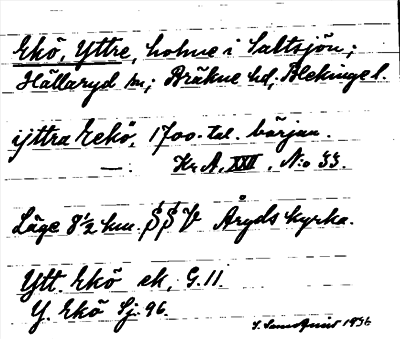 Ekö, Yttre, holme i Saltsjön;
Hällaryd sn; Bräkne hd, Blekinge l.
ijttra Eekö, 1700-tal. början.
— : Kr. A. XXII, N:o 33.
Läge 8½ km. SSV Åryds kyrka.
Ytt. Ekö ek, G. 11.
Y. Ekö Sj. 96.
1936